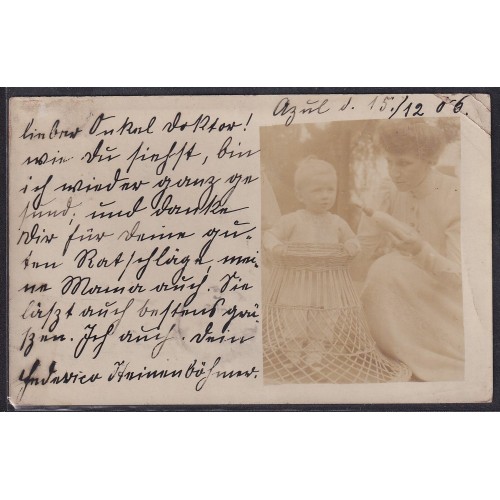 Azul d. 15./12 06.
lieber Onkel Doktor!
wie Du siehst, bin
ich wieder ganz ge
sund, und danke
Dir für Deine gu-
ten Ratschläge, mei-
ne Mama auch. Sie
läszt auch bestens grü-
szen. Ich auch. Dein
Federico Heinenböhmer.